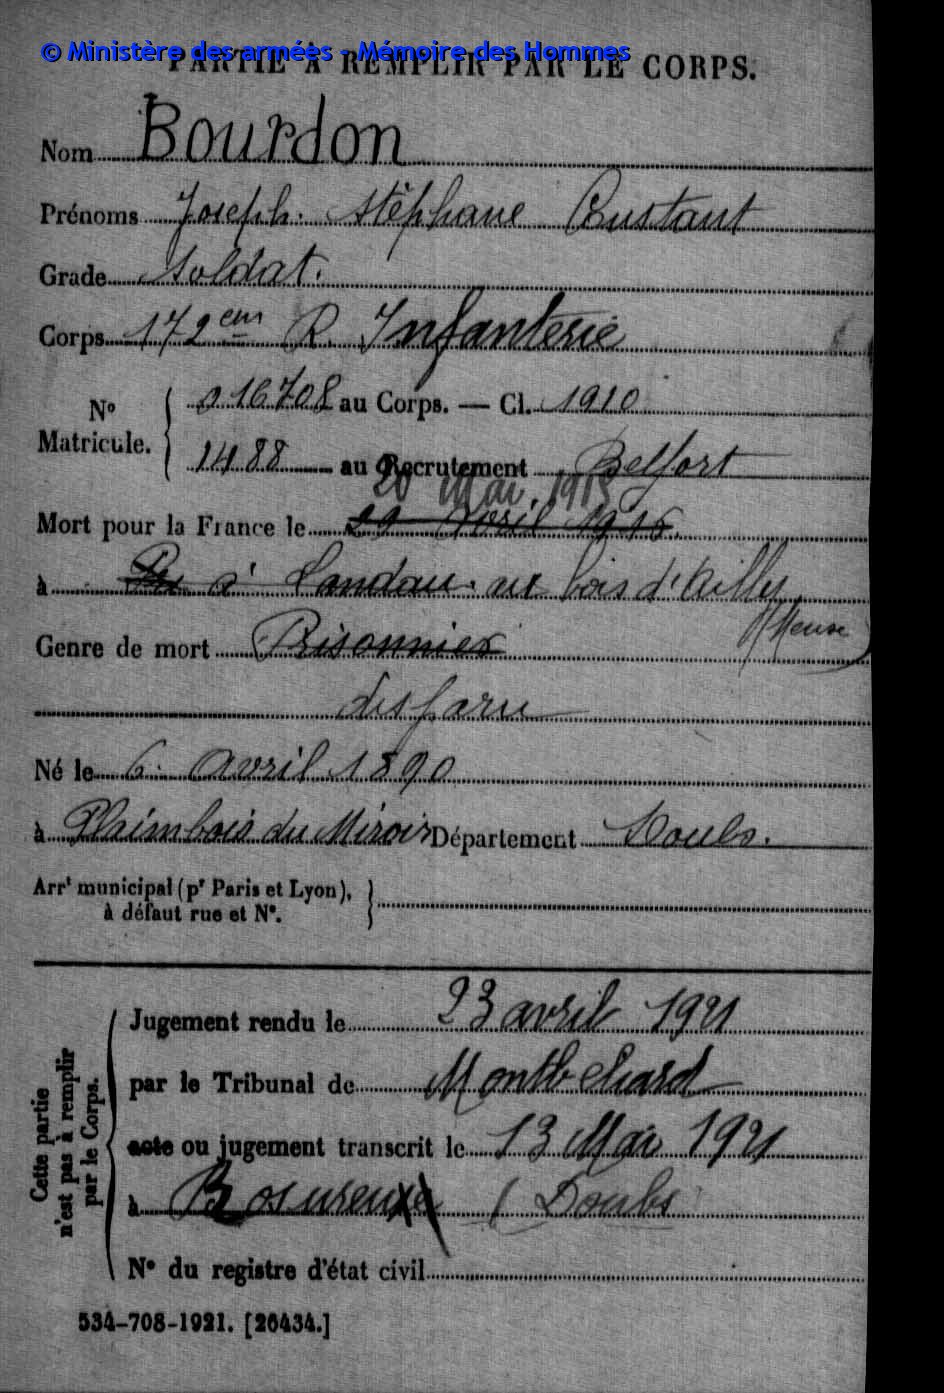 © Ministère des armées - Mémoire des Hommes
PARTIE À REMPLIR PAR LE CORPS.
Nom Bourdon
Prénoms Joseph. Stéphane Constant
Grade Soldat.
Corps 172 em R. Infanterie
Nº Matricule. 016708 au Corps. — Cl. 1910
1488 au Recrutement Belfort
20 Mai 1915
Mort pour la France le 29 Avril 1916.
à Landau. au bois d'Ailly
(Meuse)
Genre de mort Prisonnier
disparu
Né le 6 Avril 1890
à Plaimbois du Miroir Département Doubs.
Arrt municipal (pr Paris et Lyon),
à défaut rue et Nº.
Cette partie
n'est pas à remplir
par le Corps.
Jugement rendu le 23 avril 1921
par le Tribunal de Montbeliard
acte ou jugement transcrit le 13 Mai 1921
à Rosureux (Doubs
Nº du registre d'état civil
534-708-1921. [26434.]